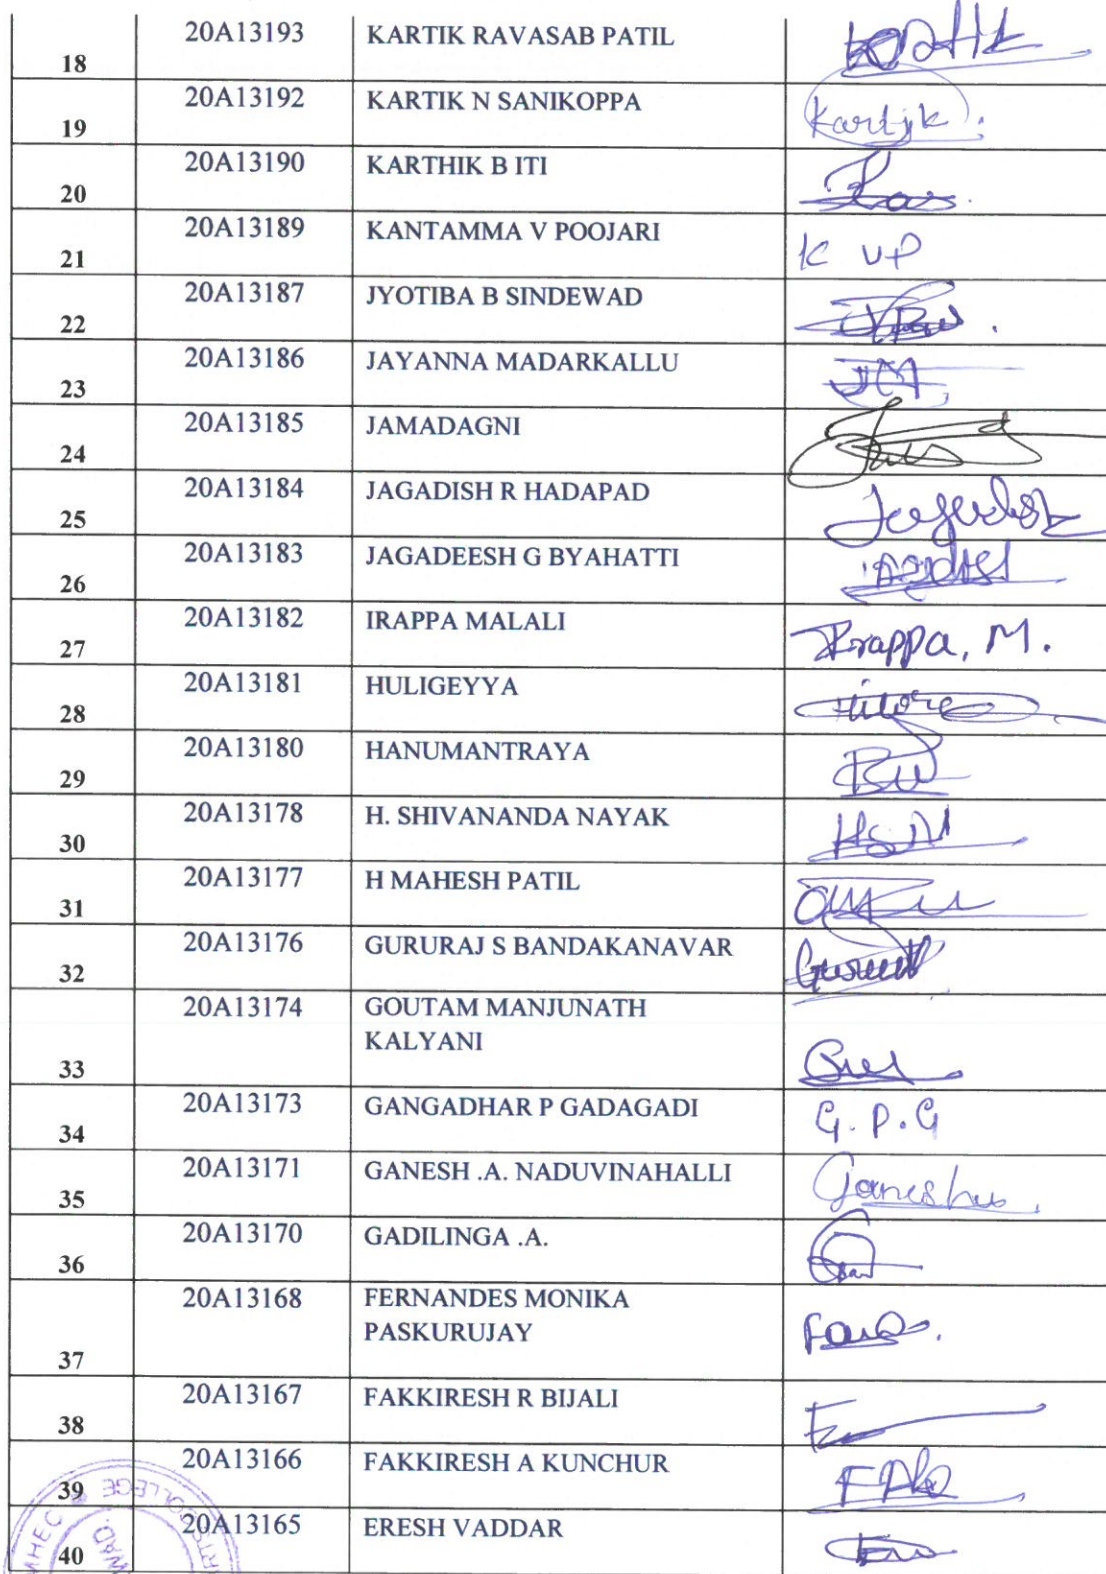 18 20A13193 KARTIK RAVASAB PATIL
19 20A13192 KARTIK N SANIKOPPA Kartik.
20 20A13190 KARTHIK B ITI
21 20A13189 KANTAMMA V POOJARI K VP
22 20A13187 JYOTIBA B SINDEWAD
23 20A13186 JAYANNA MADARKALLU JM
24 20A13185 JAMADAGNI
25 20A13184 JAGADISH R HADAPAD
26 20A13183 JAGADEESH G BYAHATTI
27 20A13182 IRAPPA MALALI Irappa, M.
28 20A13181 HULIGEYYA
29 20A13180 HANUMANTRAYA
30 20A13178 H. SHIVANANDA NAYAK HSN
31 20A13177 H MAHESH PATIL
32 20A13176 GURURAJ S BANDAKANAVAR
33 20A13174 GOUTAM MANJUNATH
KALYANI
34 20A13173 GANGADHAR P GADAGADI G.P.G
35 20A13171 GANESH .A. NADUVINAHALLI
36 20A13170 GADILINGA .A.
37 20A13168 FERNANDES MONIKA
PASKURUJAY
38 20A13167 FAKKIRESH R BIJALI
39 20A13166 FAKKIRESH A KUNCHUR
40 20A13165 ERESH VADDAR
COLLEGE